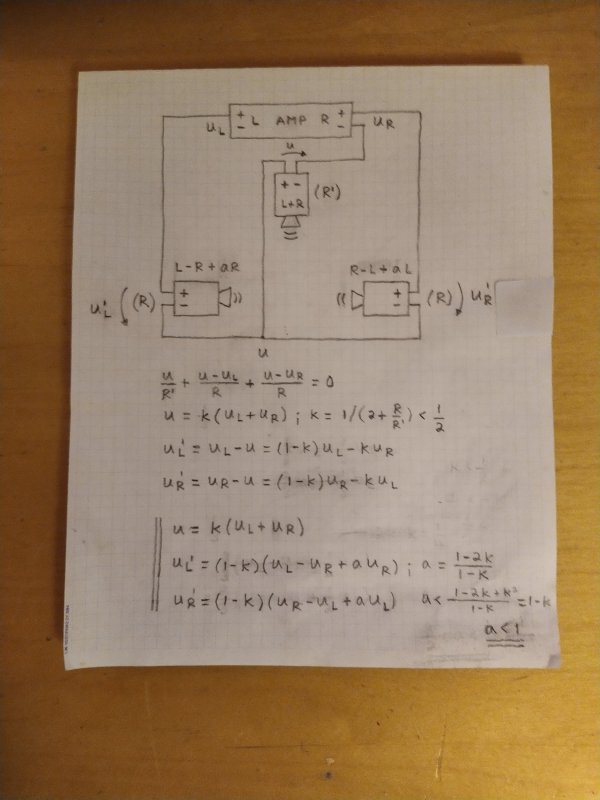 + L AMP R +
- -
u_L u_R
u
+ -
L+R
(R')
L-R+aR R-L+aL
u_L' (R) + - + - (R) u_R'
u
u/R' + (u-u_L)/R + (u-u_R)/R = 0
u = k(u_L+u_R) ; k = 1/(2+R/R') < 1/2
u_L' = u_L-u = (1-k)u_L-ku_R
u_R' = u_R-u = (1-k)u_R-ku_L
u = k(u_L+u_R)
u_L' = (1-k)(u_L-u_R+au_R) ; a = (1-2k)/(1-k)
u_R' = (1-k)(u_R-u_L+au_L) a < (1-2k+k²)/(1-k) = 1-k
a<1